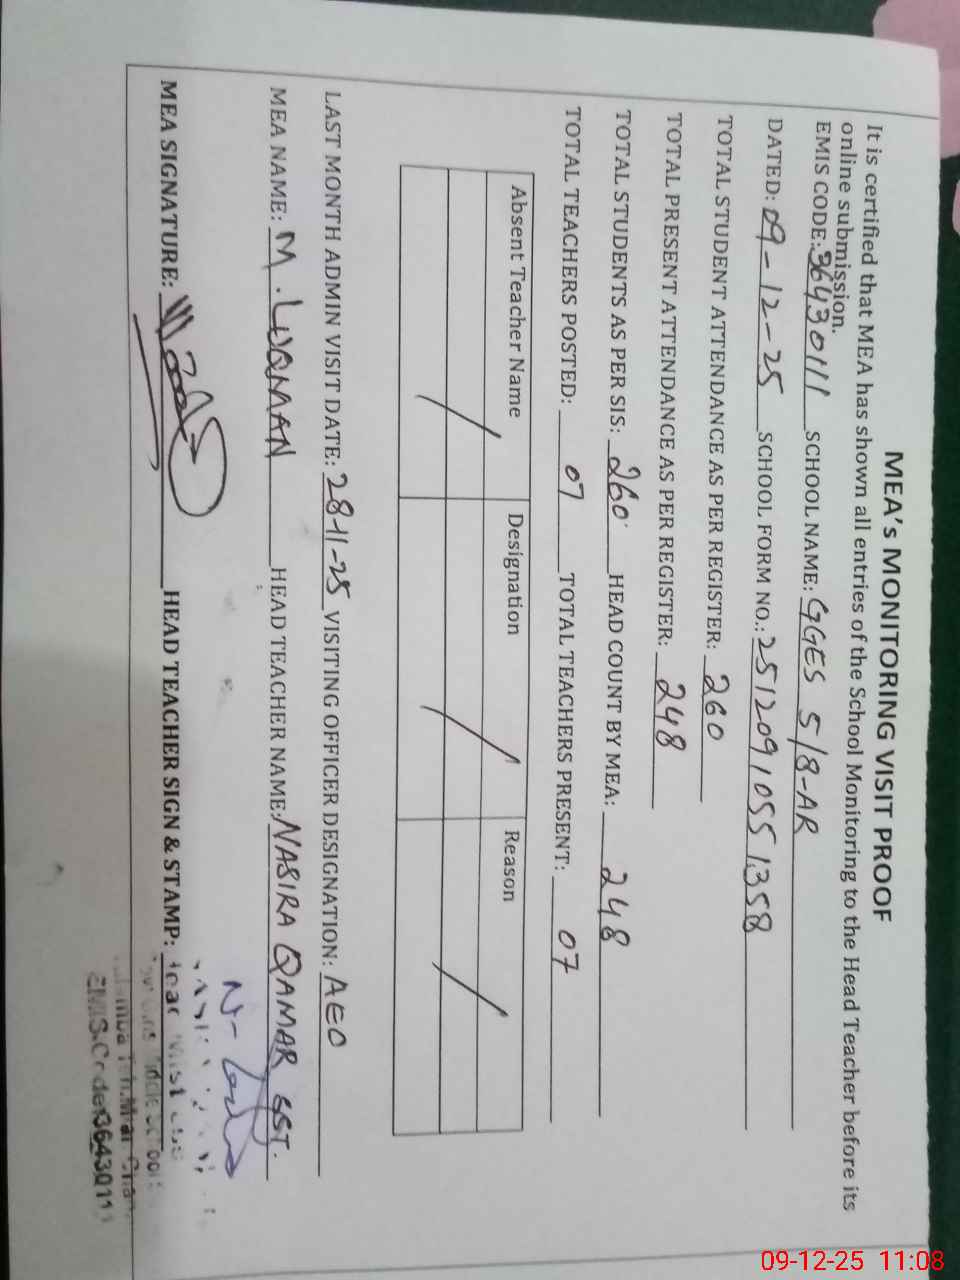 MEA's MONITORING VISIT PROOF
It is certified that MEA has shown all entries of the School Monitoring to the Head Teacher before its
online submission.
EMIS CODE: 36430111 SCHOOL NAME: GGES 5/8-AR
DATED: 09-12-25 SCHOOL FORM NO.: 2512091055 1358
TOTAL STUDENT ATTENDANCE AS PER REGISTER: 260
TOTAL PRESENT ATTENDANCE AS PER REGISTER: 248
TOTAL STUDENTS AS PER SIS: 260 HEAD COUNT BY MEA: 248
TOTAL TEACHERS POSTED: 07 TOTAL TEACHERS PRESENT: 07
Absent Teacher Name Designation Reason
LAST MONTH ADMIN VISIT DATE: 28-11-25 VISITING OFFICER DESIGNATION: AEO
MEA NAME: M. LUQMAN HEAD TEACHER NAME: NASIRA QAMAR SST.
MEA SIGNATURE: HEAD TEACHER SIGN & STAMP:
EMIS Code
09-12-25 11:08